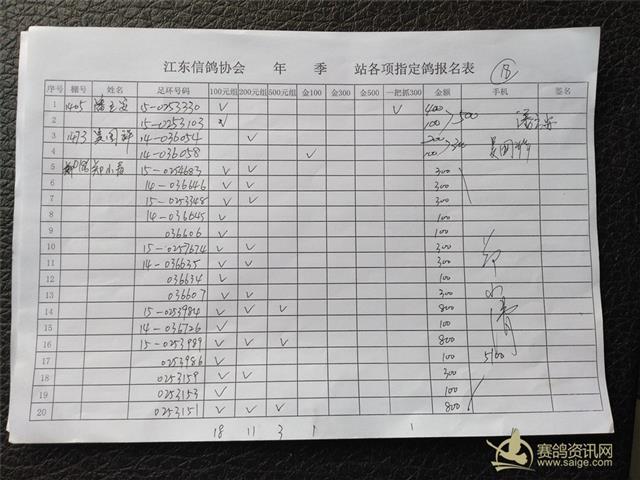 江东信鸽协会 年 季 站各项指定鸽报名表 18
序号 棚号 姓名 足环号码 100元组 200元组 500元组 金100 金300 金500 一把抓300 金额 手机 签名
1 1405 15-0253330 √ √ 400
2 15-0253103 √ 100 500
3 14-036054 √ 200
4 14-036058 √ 100
5 15-0254683 √ √ 300
6 14-036646 √ √ 300
7 15-0253348 √ √ 300
8 14-036645 √ 100
9 036606 √ 100
10 15-0257674 √ √ 300
11 14-036635 √ √ 300
12 036634 √ 100
13 036607 √ √ 300
14 15-0253984 √ √ √ 800
15 14-036726 √ 100
16 15-0253989 √ √ √ 800
17 0253986 √ 100 5100
18 0253159 √ √ 300
19 0253153 √ 100
20 0253151 √ √ √ 800
18 11 3 1 1
赛鸽资讯网
www.saige.com